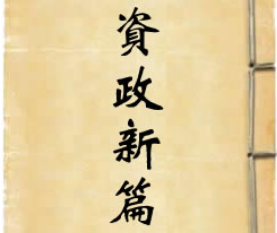 資政新篇